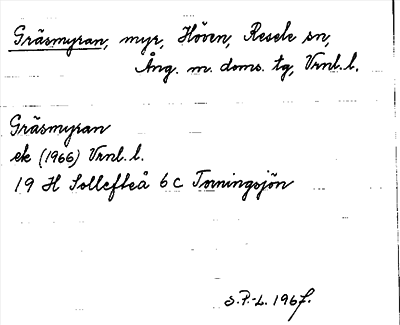 Gräsmyran, myr, Höven, Resele sn,
Ång. m. doms. tg, Vrnl. l.
Gräsmyran
ek (1966) Vrnl. l.
19 H Sollefteå 6 c Torningsjön
S.P.-L. 1967.